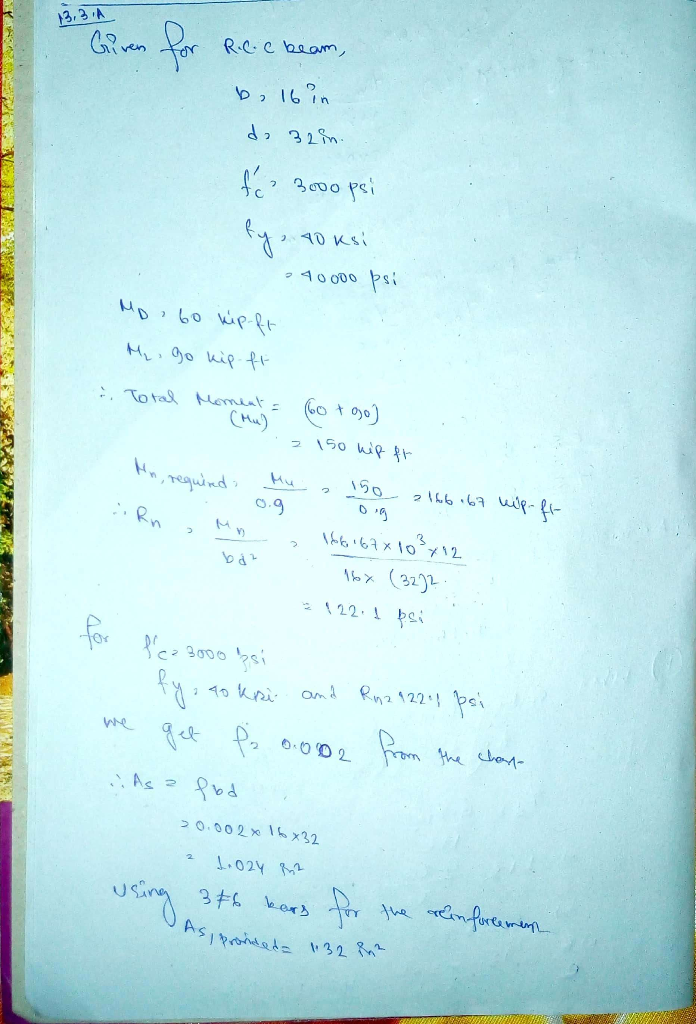 13.3.A
Given for R.C.C beam,
b = 16 in
d = 32 in.
f'c = 3000 psi
fy = 40 ksi
= 40000 psi
MD = 60 kip-ft
ML = 90 kip-ft
∴ Total Moment = (60 + 90)
(Mu)
= 150 kip ft
Mn, required = Mu/0.9 = 150/0.9 = 166.67 kip-ft
∴ Rn = Mn/bd² = 166.67 x 10³ x 12/16 x (32)²
= 122.1 psi
for f'c = 3000 psi
fy = 40 ksi and Rn = 122.1 psi
we get ρ = 0.002 from the chart
∴ As = ρbd
= 0.002 x 16 x 32
= 1.024 in²
using 3 #6 bars for the reinforcement
As, provided = 1.32 in²